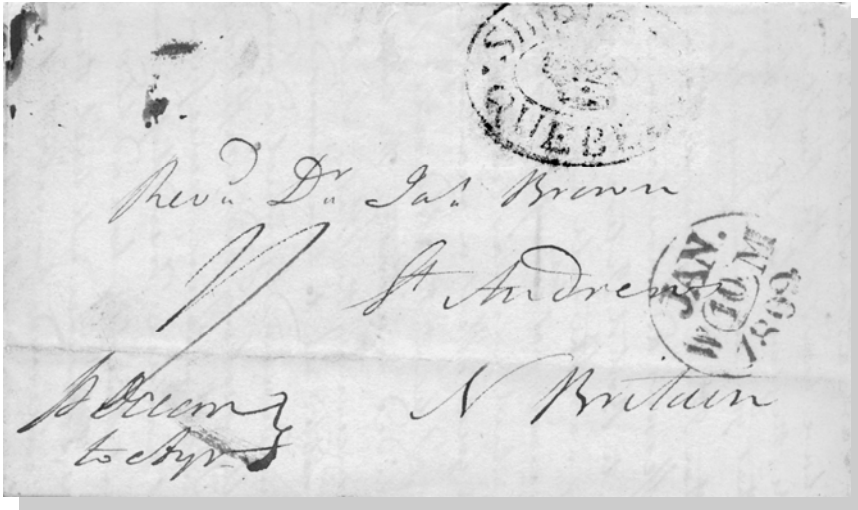 QUEBE
Revd Dr Jas Brown
St Andrews
JAN.
W 10 M
1809
N Britain
p Ocean
to Ayr